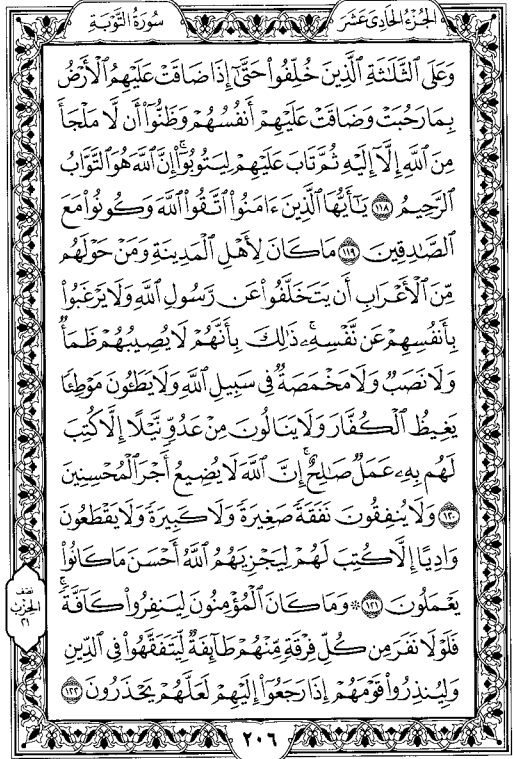 سُورَةُ التَّوْبَةِ
الجُزْءُ الحَادِي عَشَرَ
وَعَلَى ٱلثَّلَٰثَةِ ٱلَّذِينَ خُلِّفُوا۟ حَتَّىٰٓ إِذَا ضَاقَتْ عَلَيْهِمُ ٱلْأَرْضُ
بِمَا رَحُبَتْ وَضَاقَتْ عَلَيْهِمْ أَنفُسُهُمْ وَظَنُّوٓا۟ أَن لَّا مَلْجَأَ
مِنَ ٱللَّهِ إِلَّآ إِلَيْهِ ثُمَّ تَابَ عَلَيْهِمْ لِيَتُوبُوٓا۟ۚ إِنَّ ٱللَّهَ هُوَ ٱلتَّوَّابُ
ٱلرَّحِيمُ ١١٨ يَٰٓأَيُّهَا ٱلَّذِينَ ءَامَنُوا۟ ٱتَّقُوا۟ ٱللَّهَ وَكُونُوا۟ مَعَ
ٱلصَّٰدِقِينَ ١١٩ مَا كَانَ لِأَهْلِ ٱلْمَدِينَةِ وَمَنْ حَوْلَهُم
مِّنَ ٱلْأَعْرَابِ أَن يَتَخَلَّفُوا۟ عَن رَّسُولِ ٱللَّهِ وَلَا يَرْغَبُوا۟
بِأَنفُسِهِمْ عَن نَّفْسِهِۦۚ ذَٰلِكَ بِأَنَّهُمْ لَا يُصِيبُهُمْ ظَمَأٌ
وَلَا نَصَبٌ وَلَا مَخْمَصَةٌ فِى سَبِيلِ ٱللَّهِ وَلَا يَطَـُٔونَ مَوْطِئًا
يَغِيظُ ٱلْكُفَّارَ وَلَا يَنَالُونَ مِنْ عَدُوٍّ نَّيْلًا إِلَّا كُتِبَ
لَهُم بِهِۦ عَمَلٌ صَٰلِحٌۚ إِنَّ ٱللَّهَ لَا يُضِيعُ أَجْرَ ٱلْمُحْسِنِينَ
١٢٠ وَلَا يُنفِقُونَ نَفَقَةً صَغِيرَةً وَلَا كَبِيرَةً وَلَا يَقْطَعُونَ
وَادِيًا إِلَّا كُتِبَ لَهُمْ لِيَجْزِيَهُمُ ٱللَّهُ أَحْسَنَ مَا كَانُوا۟
يَعْمَلُونَ ١٢١ ۞ وَمَا كَانَ ٱلْمُؤْمِنُونَ لِيَنفِرُوا۟ كَآفَّةًۚ
فَلَوْلَا نَفَرَ مِن كُلِّ فِرْقَةٍ مِّنْهُمْ طَآئِفَةٌ لِّيَتَفَقَّهُوا۟ فِى ٱلدِّينِ
وَلِيُنذِرُوا۟ قَوْمَهُمْ إِذَا رَجَعُوٓا۟ إِلَيْهِمْ لَعَلَّهُمْ يَحْذَرُونَ ١٢٢
نصف
الحزب
٢١
٢٠٦